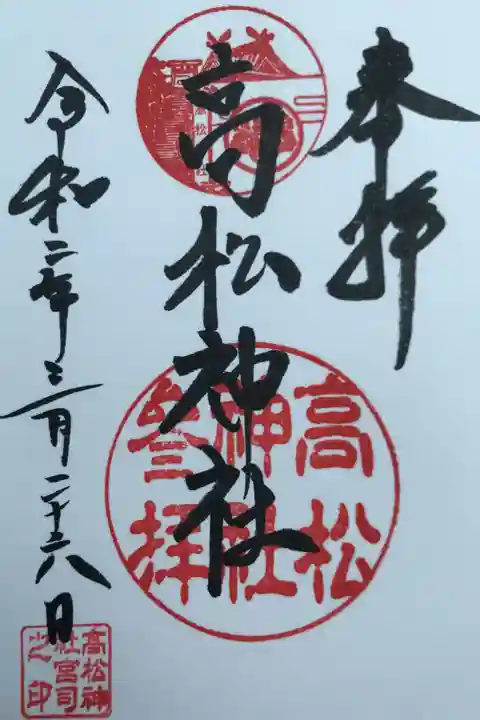 奉拝
高松神社
高松
神社
参拝
令和二年三月二十六日
高松神
社宮司
之印